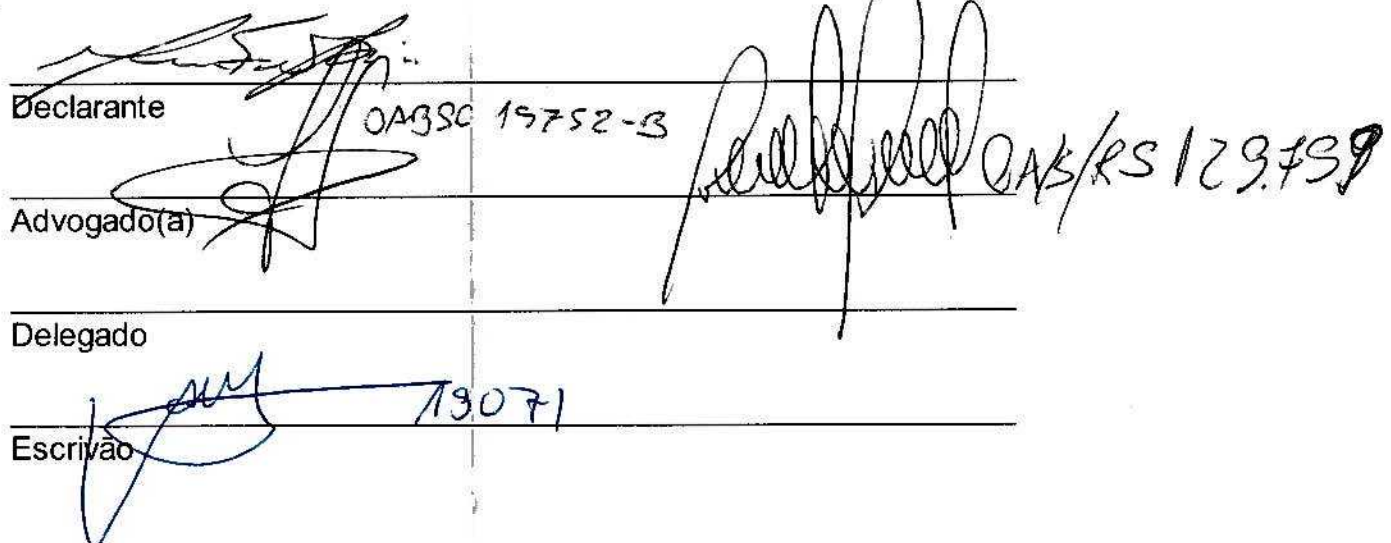 Declarante
OABSC 19752-B
OAB/RS 129.759
Advogado(a)
Delegado
19071
Escrivão